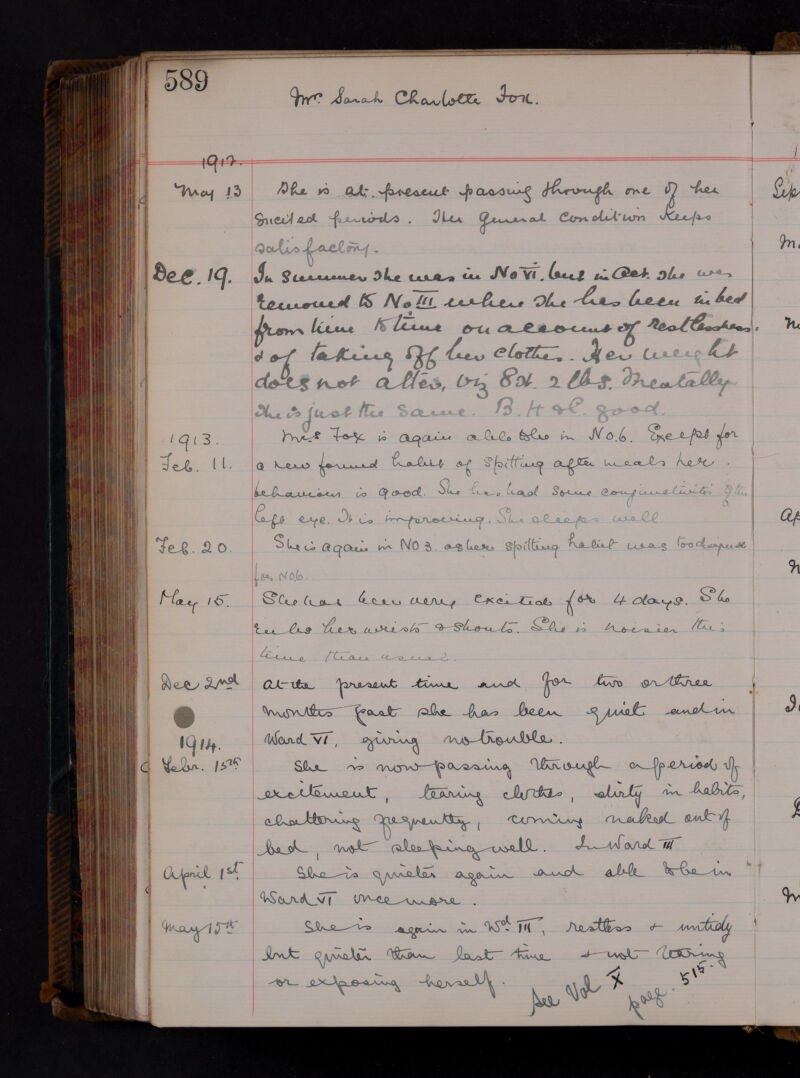 589
Mrs Sarah Charlotte Fox.
1912.
May 13 She is at present passing through one of her
Excited periods. Her General Condition Keeps
satisfactory.
Dec. 19. In Summer she was in No VI. but in Oct. she was
removed to No III where she has been in bed
from time to time on account of Restlessness.
& of taking off her clothes. Her weight
does not alter, viz 8st. 2 lbs. Mentally
she is just the same. B. H & C. good.
1913.
Feb. 11. Mrs Fox is again able to be in No.6. Except for
a new formed habit of spitting after meals her
behaviour is good. She has had some conjunctivitis of the
left eye. It is improving. She sleeps well
Feb. 20. She is again in No 3. as her spitting habit was too
for No 6.
May 15. She has been very excited for 4 days. She
her wrists & shouts. She is noisier this
time than usual.
Dec 2nd At the present time and for two or three
months past she has been quiet and in
Ward VI, giving no trouble.
1914.
Febr. 15th She is now passing through a period of
excitement, tearing clothes, dirty in habits,
chattering frequently, coming naked out of
bed, not sleeping well. In Ward III
April 1st She is quieter again and able to be in
Ward VI once more.
May 15th She is again in Wd III, restless & untidy
but quieter than last time & not tearing
or exposing herself.
See Vol X page. 515.